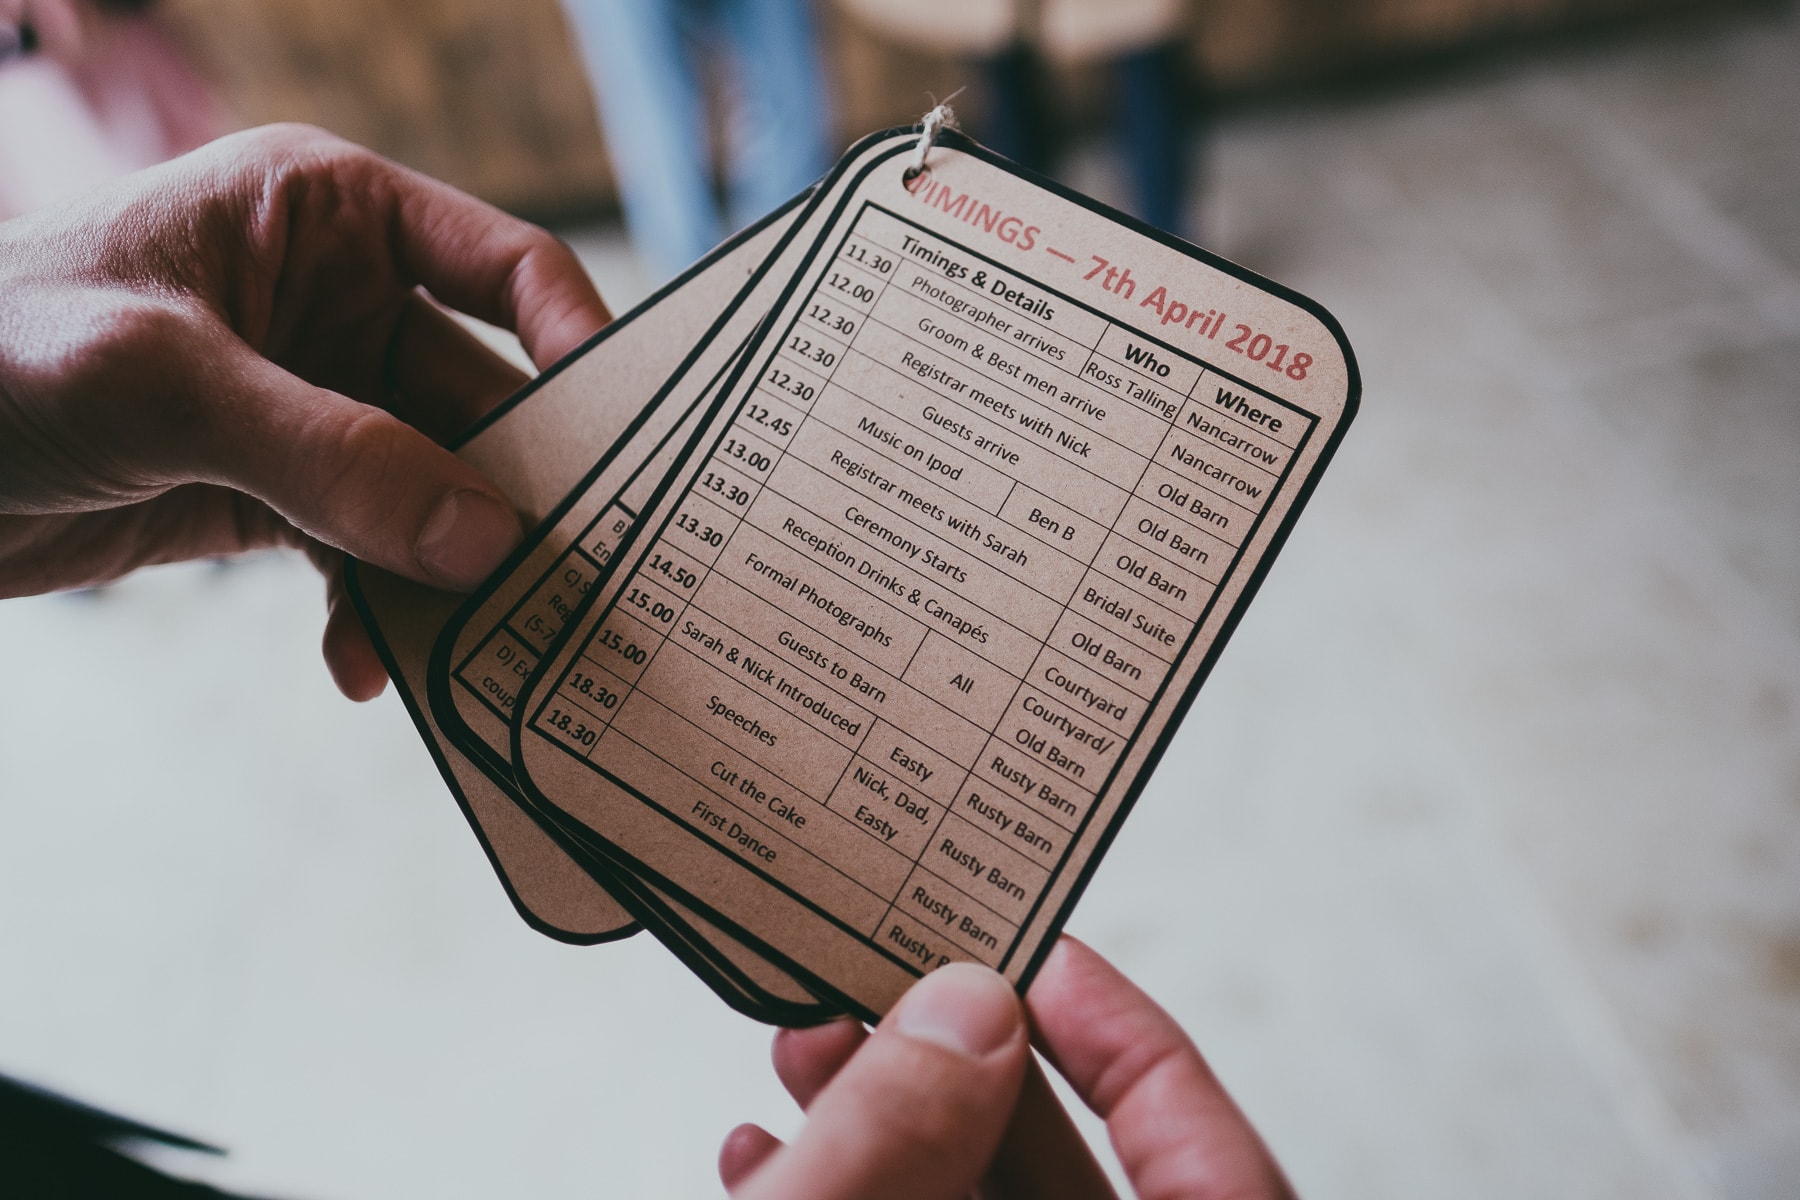 TIMINGS — 7th April 2018
Timings & Details Who Where
11.30 Photographer arrives Ross Talling Nancarrow
12.00 Groom & Best men arrive Nancarrow
12.30 Registrar meets with Nick Old Barn
12.30 Guests arrive Old Barn
12.30 Music on Ipod Ben B Old Barn
12.45 Registrar meets with Sarah Bridal Suite
13.00 Ceremony Starts Old Barn
13.30 Reception Drinks & Canapés Courtyard
13.30 Formal Photographs All Courtyard/
Old Barn
14.50 Guests to Barn Rusty Barn
15.00 Sarah & Nick Introduced Easty Rusty Barn
15.00 Speeches Nick, Dad,
Easty Rusty Barn
18.30 Cut the Cake Rusty Barn
18.30 First Dance Rusty
B)
C)
D)